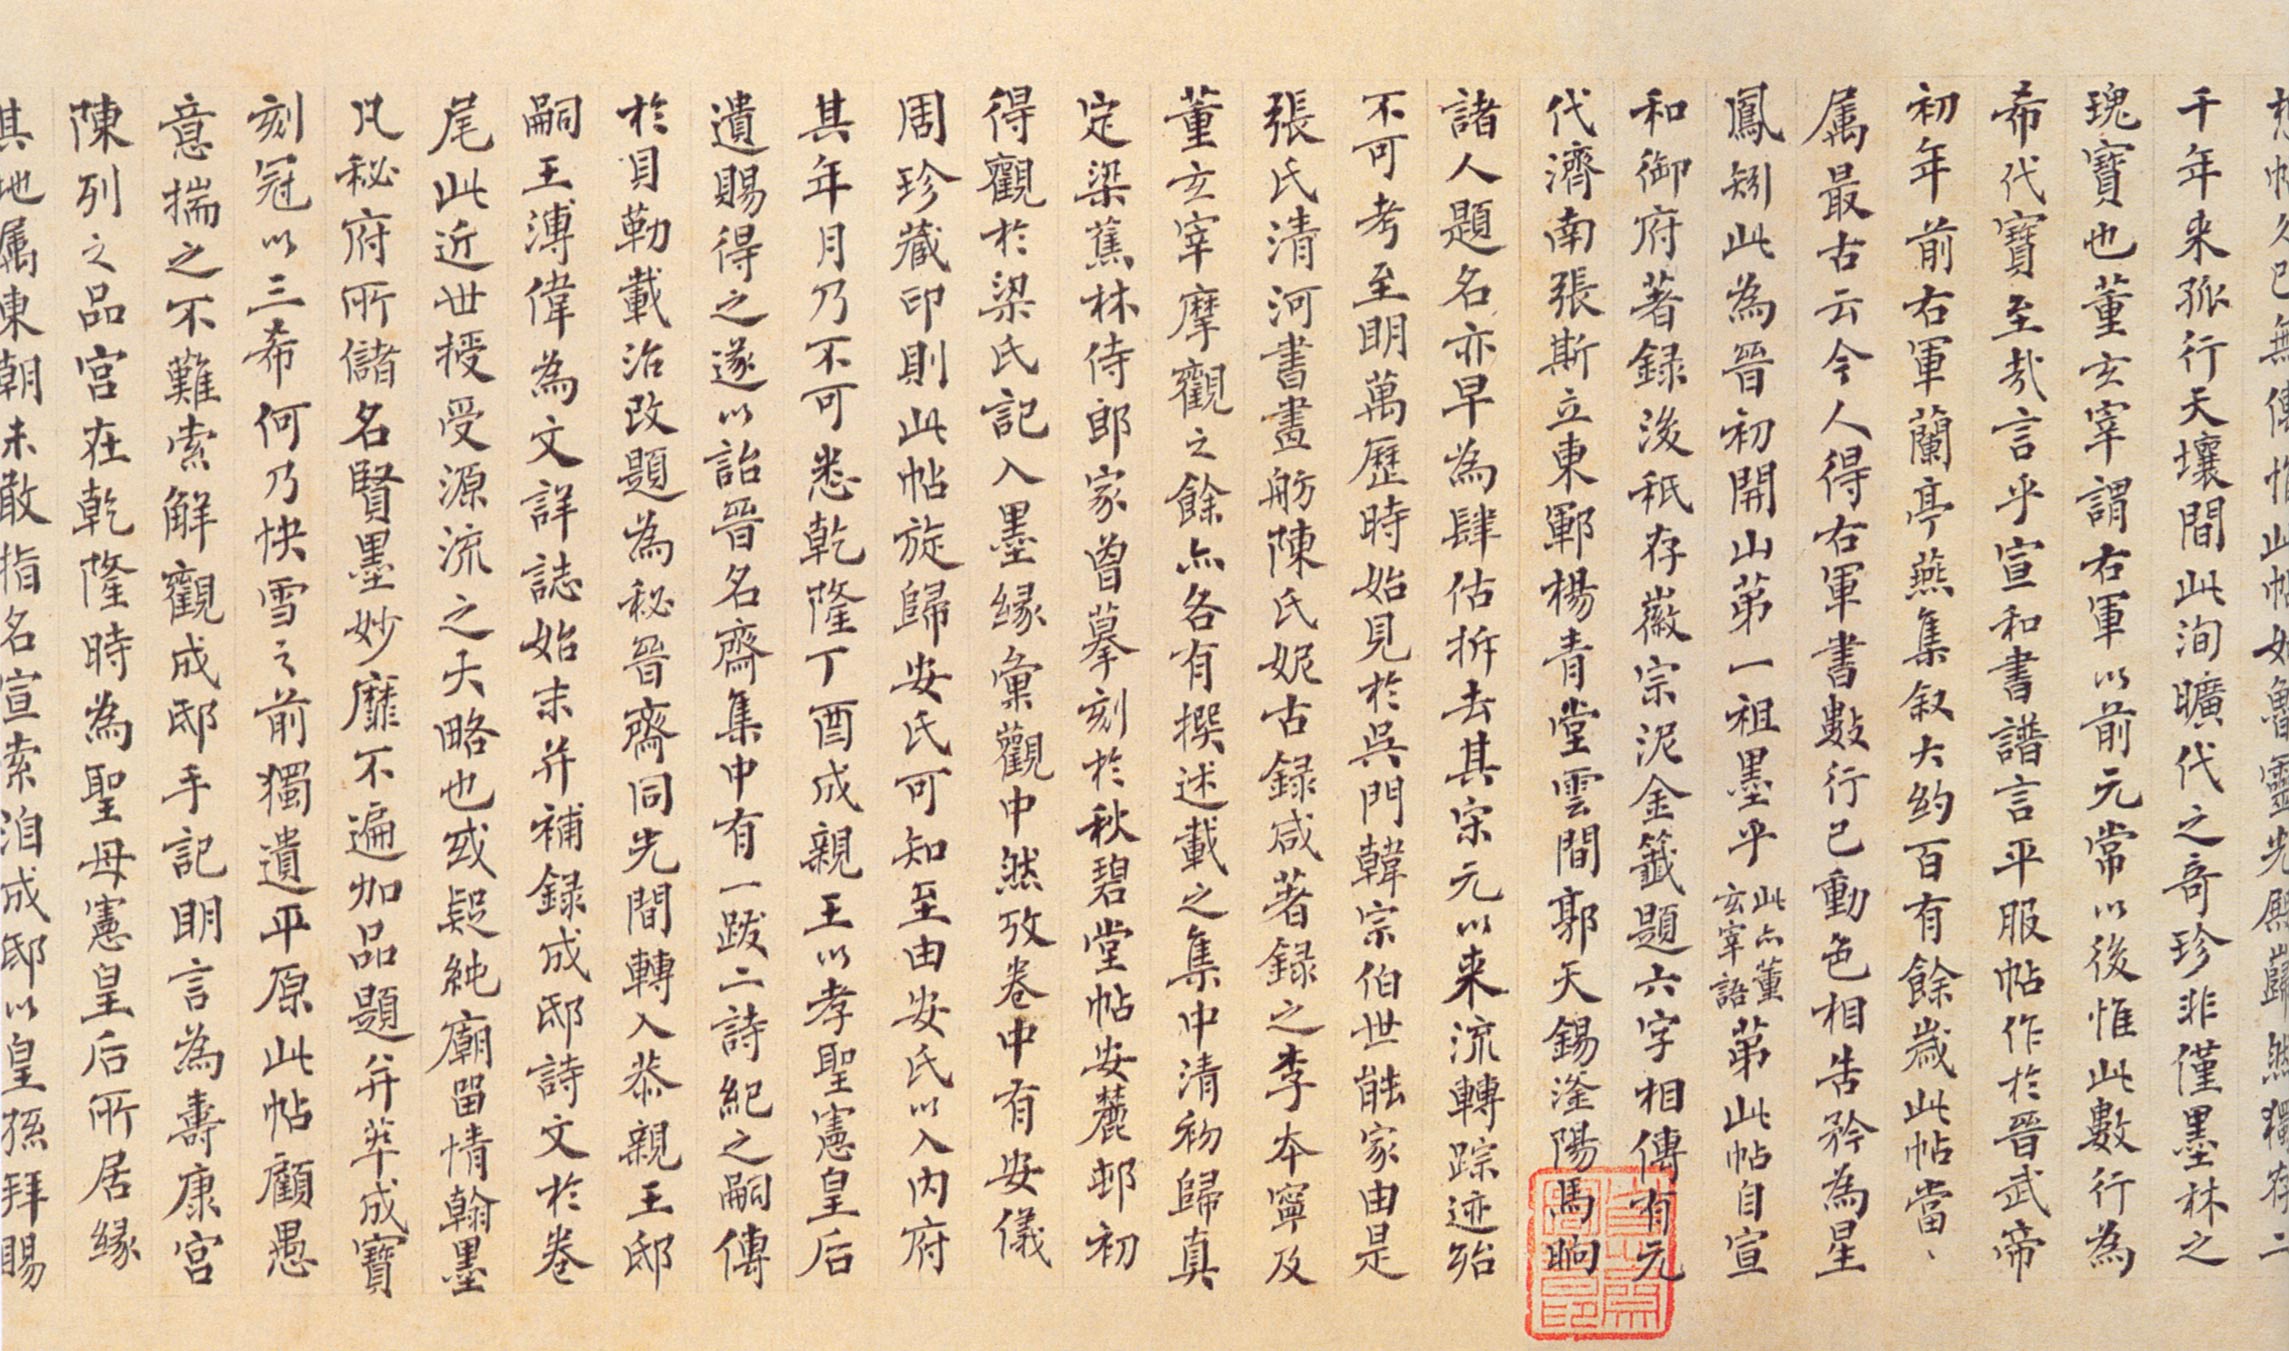 帖久已無傳惟此帖如魯靈光殿巋然獨存二
千年来孤行天壤間此洵曠代之奇珍非僅墨林之
瑰寶也董玄宰謂右軍以前元常以後惟此數行為
希代寶至哉言乎宣和書譜言平服帖作於晉武帝
初年前右軍蘭亭燕集叙大约百有餘歲此帖當、
属最古云今人得右軍書數行已動色相告矜為星
鳳矧此為晉初開山第一祖墨乎此亦董玄宰語第此帖自宣
和御府著録後秖存徽宗泥金籤題六字相傳有元
代濟南張斯立東鄆楊青堂雲間郭天錫滏陽馬晌
諸人題名亦早為肆估拆去其宋元以来流轉踪迹殆
不可考至明萬歷時始見於吳門韓宗伯世能家由是
張氏清河書畫舫陳氏妮古録咸著録之李本寧及
董玄宰摩觀之餘亦各有撰述載之集中清初歸真
定梁蕉林侍郎家曾摹刻於秋碧堂帖安麓邨初
得觀於梁氏記入墨緣彙觀中然攷卷中有安儀
周珍藏印則此帖旋歸安氏可知至由安氏以入内府
其年月乃不可悉乾隆丁酉成親王以孝聖憲皇后
遺賜得之遂以詒晉名齋集中有一跋二詩紀之嗣傳
於貝勒載治改題為秘晉齋同光間轉入恭親王邸
嗣王溥偉為文詳誌始末并補録成邸詩文於卷
尾此近世授受源流之大略也或疑純廟留情翰墨
凡秘府所儲名賢墨妙靡不遍加品題并萃成寶
刻冠以三希何乃快雪之前獨遺平原此帖顧愚
意揣之不難索解觀成邸手記明言為壽康宮
陳列之品宮在乾隆時為聖母憲皇后所居緣
其地属東朝未敢指名宣索洎成邸以皇孫拜賜